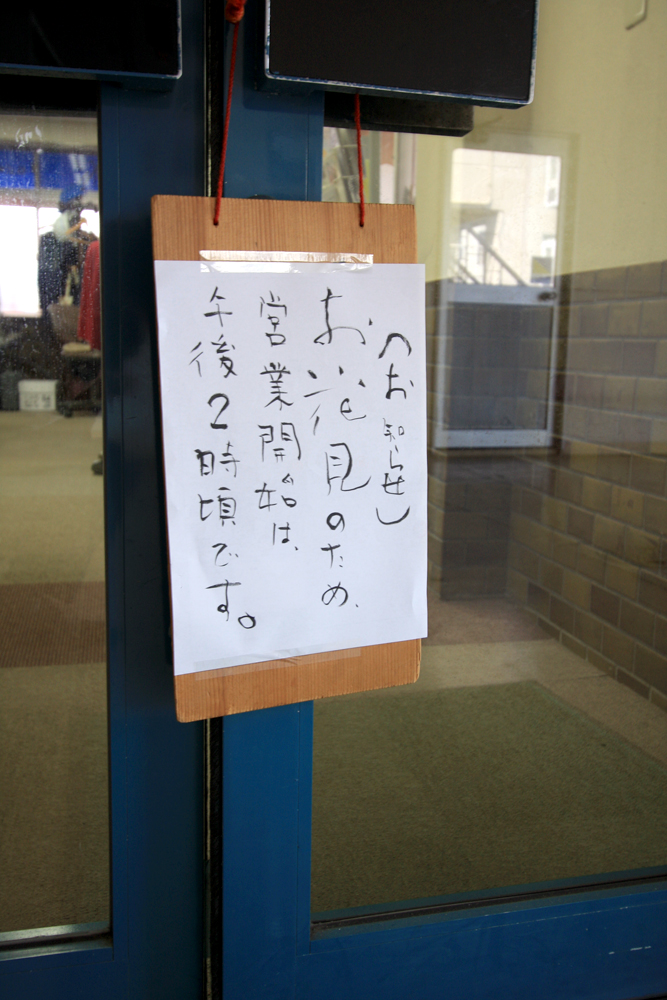 (お知らせ)
お花見のため、
営業開始は、
午後2時頃です。